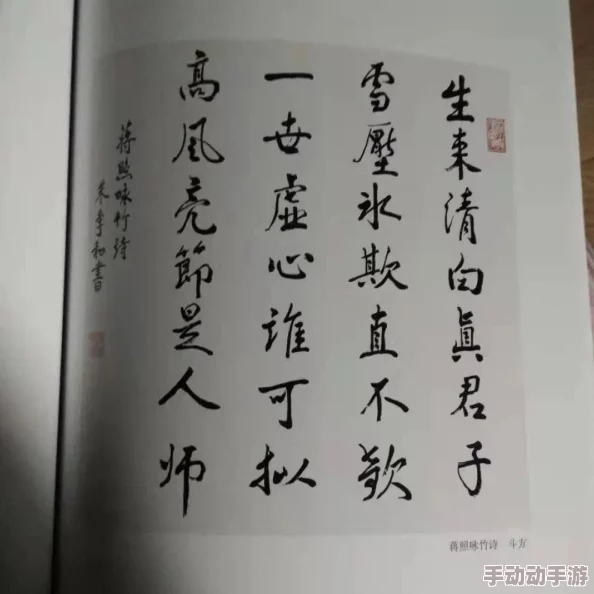 生来清白真君子
雪壓氷欺直不欹
一世虚心誰可拟
高風亮節是人师
蒋照咏竹诗
朱季和書
蒋照咏竹诗 斗方
手动动手游